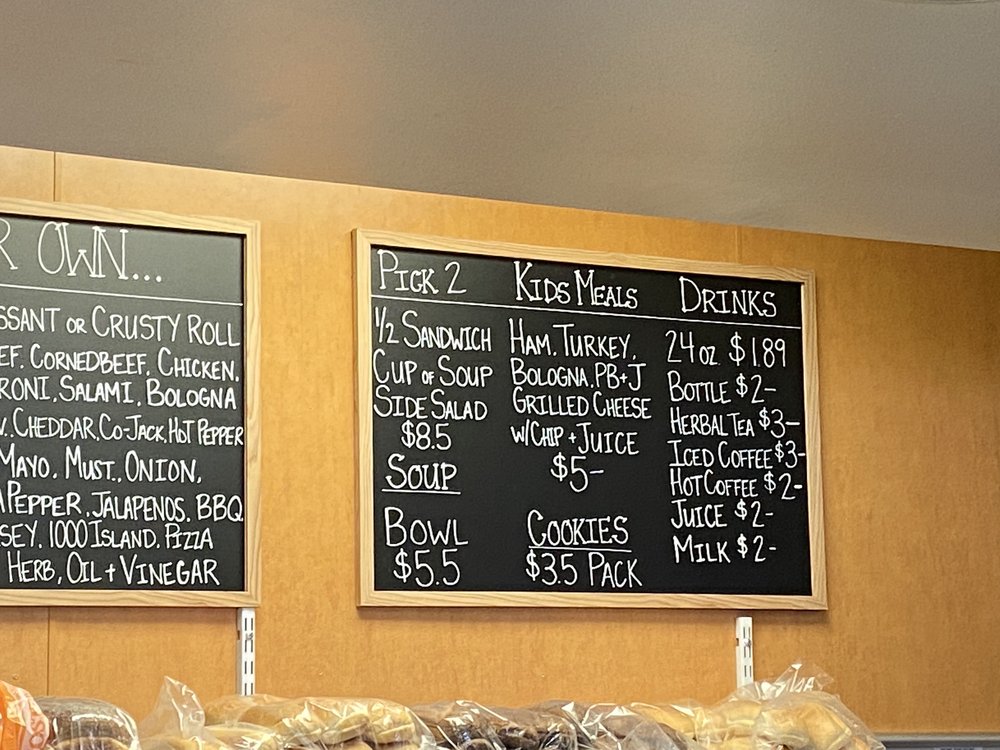 OWN...
OR CRUSTY ROLL
CORNEDBEEF, CHICKEN,
SALAMI, BOLOGNA
CHEDDAR, CO-JACK, HOT PEPPER
MAYO, MUST, ONION,
PEPPER, JALAPENOS, BBQ
1000 ISLAND, PIZZA
HERB, OIL + VINEGAR
PICK 2
1/2 SANDWICH
CUP OF SOUP
SIDE SALAD
$8.5
SOUP
BOWL
$5.5
KIDS MEALS
HAM, TURKEY,
BOLOGNA, PB+J
GRILLED CHEESE
W/CHIP + JUICE
$5-
COOKIES
$3.5 PACK
DRINKS
24 OZ $1.89
BOTTLE $2-
HERBAL TEA $3-
ICED COFFEE $3-
HOT COFFEE $2-
JUICE $2-
MILK $2-